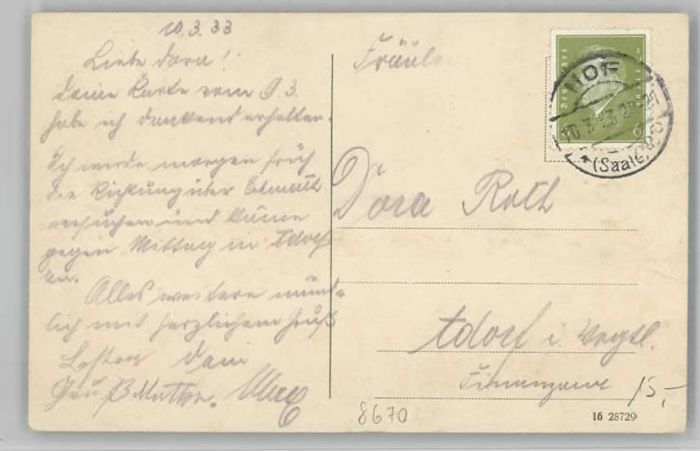 10.3.33
Liebe Dora!
Deine Karte vom 9.3.
habe ich dankend erhalten.
Ich werde morgen früh
die Richtung über
versuchen und käme
gegen Mittag in Adorf
an.
Alles weitere münd-
lich mit herzlichem Gruß
Dein
Gruß Mutter.
Fräulein
Dora Roth
Adorf i. Vogtl.
15,-
8670
16 28729
HOF
(Saale)
6